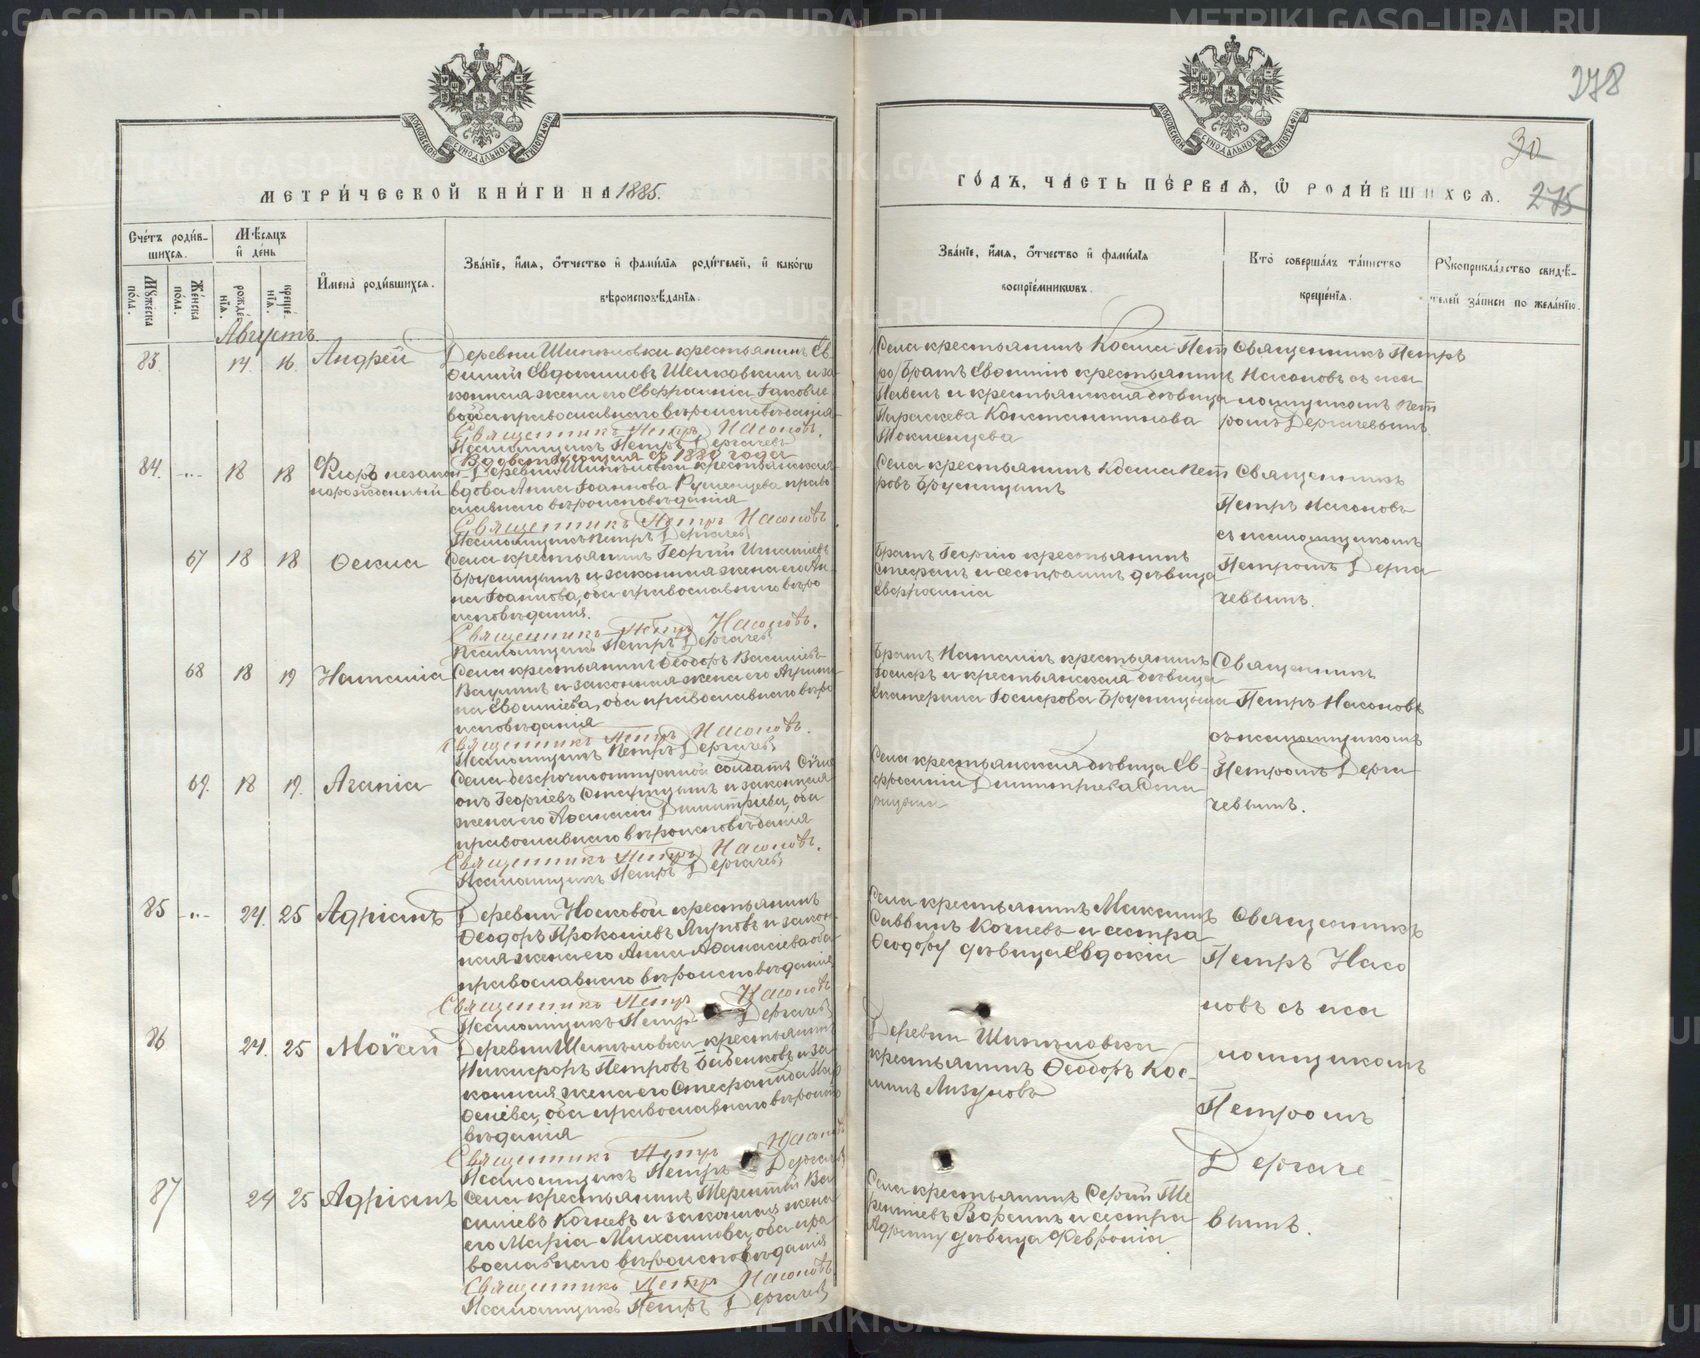 METRIKI.GASO-URAL.RU
378
30
275
МЕТРИ́ЧЕСКОЙ КНИ́ГИ НА 1885.
ГО́ДЪ, ЧА́СТЬ ПЕ́РВАѦ, Ѽ РОДИ́ВШИХСѦ.
Сче́тъ роди́в-
шихсѧ.
Мѣ́сѧцъ
и҆ де́нь
Мꙋ́жеска по́ла.
Же́нска по́ла.
рожде́нїѧ.
креще́нїѧ.
И҆мена̀ роди́вшихсѧ.
Зва́нїе, и҆́мѧ, ѻ҆́тчество и҆ фами́лїѧ роди́телей, и҆ како́гѡ
вѣроисповѣ́данїѧ.
Зва́нїе, и҆́мѧ, ѻ҆́тчество и҆ фами́лїѧ
воспрїе́мникѡвъ.
Кто̀ соверша́лъ та́инство
креще́нїѧ.
Рꙋкоприкла́дство свидѣ́-
телей за́писи по жела́нїю.
Августъ.
83. 14 16. Андрей
Деревни Шипиловки крестьянинъ Ев
фимій Евдокимовъ и за-
конная жена его Евфросинія Іаковле
ва, оба православнаго вѣроисповѣданія
Священникъ Петръ Насоновъ.
Псаломщикъ Петръ Дергачевъ
Села крестьянинъ Косма Пет
ро братъ Евфимію крестьянинъ
Павелъ и крестьянская дѣвица
Параскева Константинова
Священникъ Петръ
Насоновъ съ пса
ломщикомъ Пет
ромъ Дергачевымъ.
84. -"- 18 18 Флоръ незакон-
норожденный
Вдовствующая съ 1880 года
Деревни Шипиловки крестьянская
вдова Анна Іоаннова Румянцева право
славнаго вѣроисповѣданія
Священникъ Петръ Насоновъ
Псаломщикъ Петръ Дергачевъ
Села крестьянинъ Косма Пет
ровъ Брусницынъ
Священникъ
Петръ Насоновъ
съ псаломщикомъ
Петромъ Дерга
чевымъ.
67 18 18 Ѳекла
Села крестьянинъ Георгій Игнатіевъ
Брусницынъ и законная жена его Ан
на Іоаннова, оба православнаго вѣро
исповѣданія.
Священникъ Петръ Насоновъ.
Псаломщикъ Петръ Дергачевъ
Братъ Георгію крестьянинъ
Стефанъ и сестра имъ дѣвица
Евфросинія
68 18 19 Наталія
Села крестьянинъ Ѳеодоръ Василіевъ
и законная жена его Агрипи
на Евфиміева, оба православнаго вѣро
исповѣданія
Священникъ Петръ Насоновъ.
Псаломщикъ Петръ Дергачевъ
Братъ Наталіи крестьянинъ
Іосифъ и крестьянская дѣвица
Екатерина Іосифова Брусницына
Священникъ
Петръ Насоновъ
съ псаломщикомъ
Петромъ Дерга
чевымъ.
69. 18 19. Агапія
Села безсрочноотпускной солдатъ Сѵме
онъ Георгіевъ и законная
жена его Аѳанасія Димитріева, оба
православнаго вѣроисповѣданія
Священникъ Петръ Насоновъ.
Псаломщикъ Петръ Дергачевъ
Села крестьянская дѣвица Ев
фросинія Димитріева
85 -"- 24. 25 Адріанъ
Деревни Носковой крестьянинъ
Ѳеодоръ Прокопіевъ и закон
ная жена его Анна Аѳанасіева оба
православнаго вѣроисповѣданія
Священникъ Петръ Насоновъ
Псаломщикъ Петръ Дергачевъ
Села крестьянинъ Максимъ
Саввинъ Кочневъ и сестра
Ѳеодору дѣвица Евдокія
Священникъ
Петръ Насо
новъ съ пса
ломщикомъ
Петромъ
Дергаче
вымъ.
86 24. 25 Моѵсей
Деревни Шипиловки крестьянинъ
Никифоръ Петровъ Бабенковъ и за
конная жена его Стефанида
оба православнаго вѣроиспо
вѣданія
Священникъ Петръ Насоновъ
Псаломщикъ Петръ Дергачевъ
Деревни Шипиловки
крестьянинъ Ѳеодоръ Кос-
минъ Лизуновъ
87 24 25 Адріанъ
Села крестьянинъ Терентій Ва
силіевъ Кочневъ и законная жена
его Марія Михаилова, оба пра
вославнаго вѣроисповѣданія
Священникъ Петръ Насоновъ
Псаломщикъ Петръ Дергачевъ
Села крестьянинъ Сергій Те
рентіевъ и сестра
дѣвица Февронія